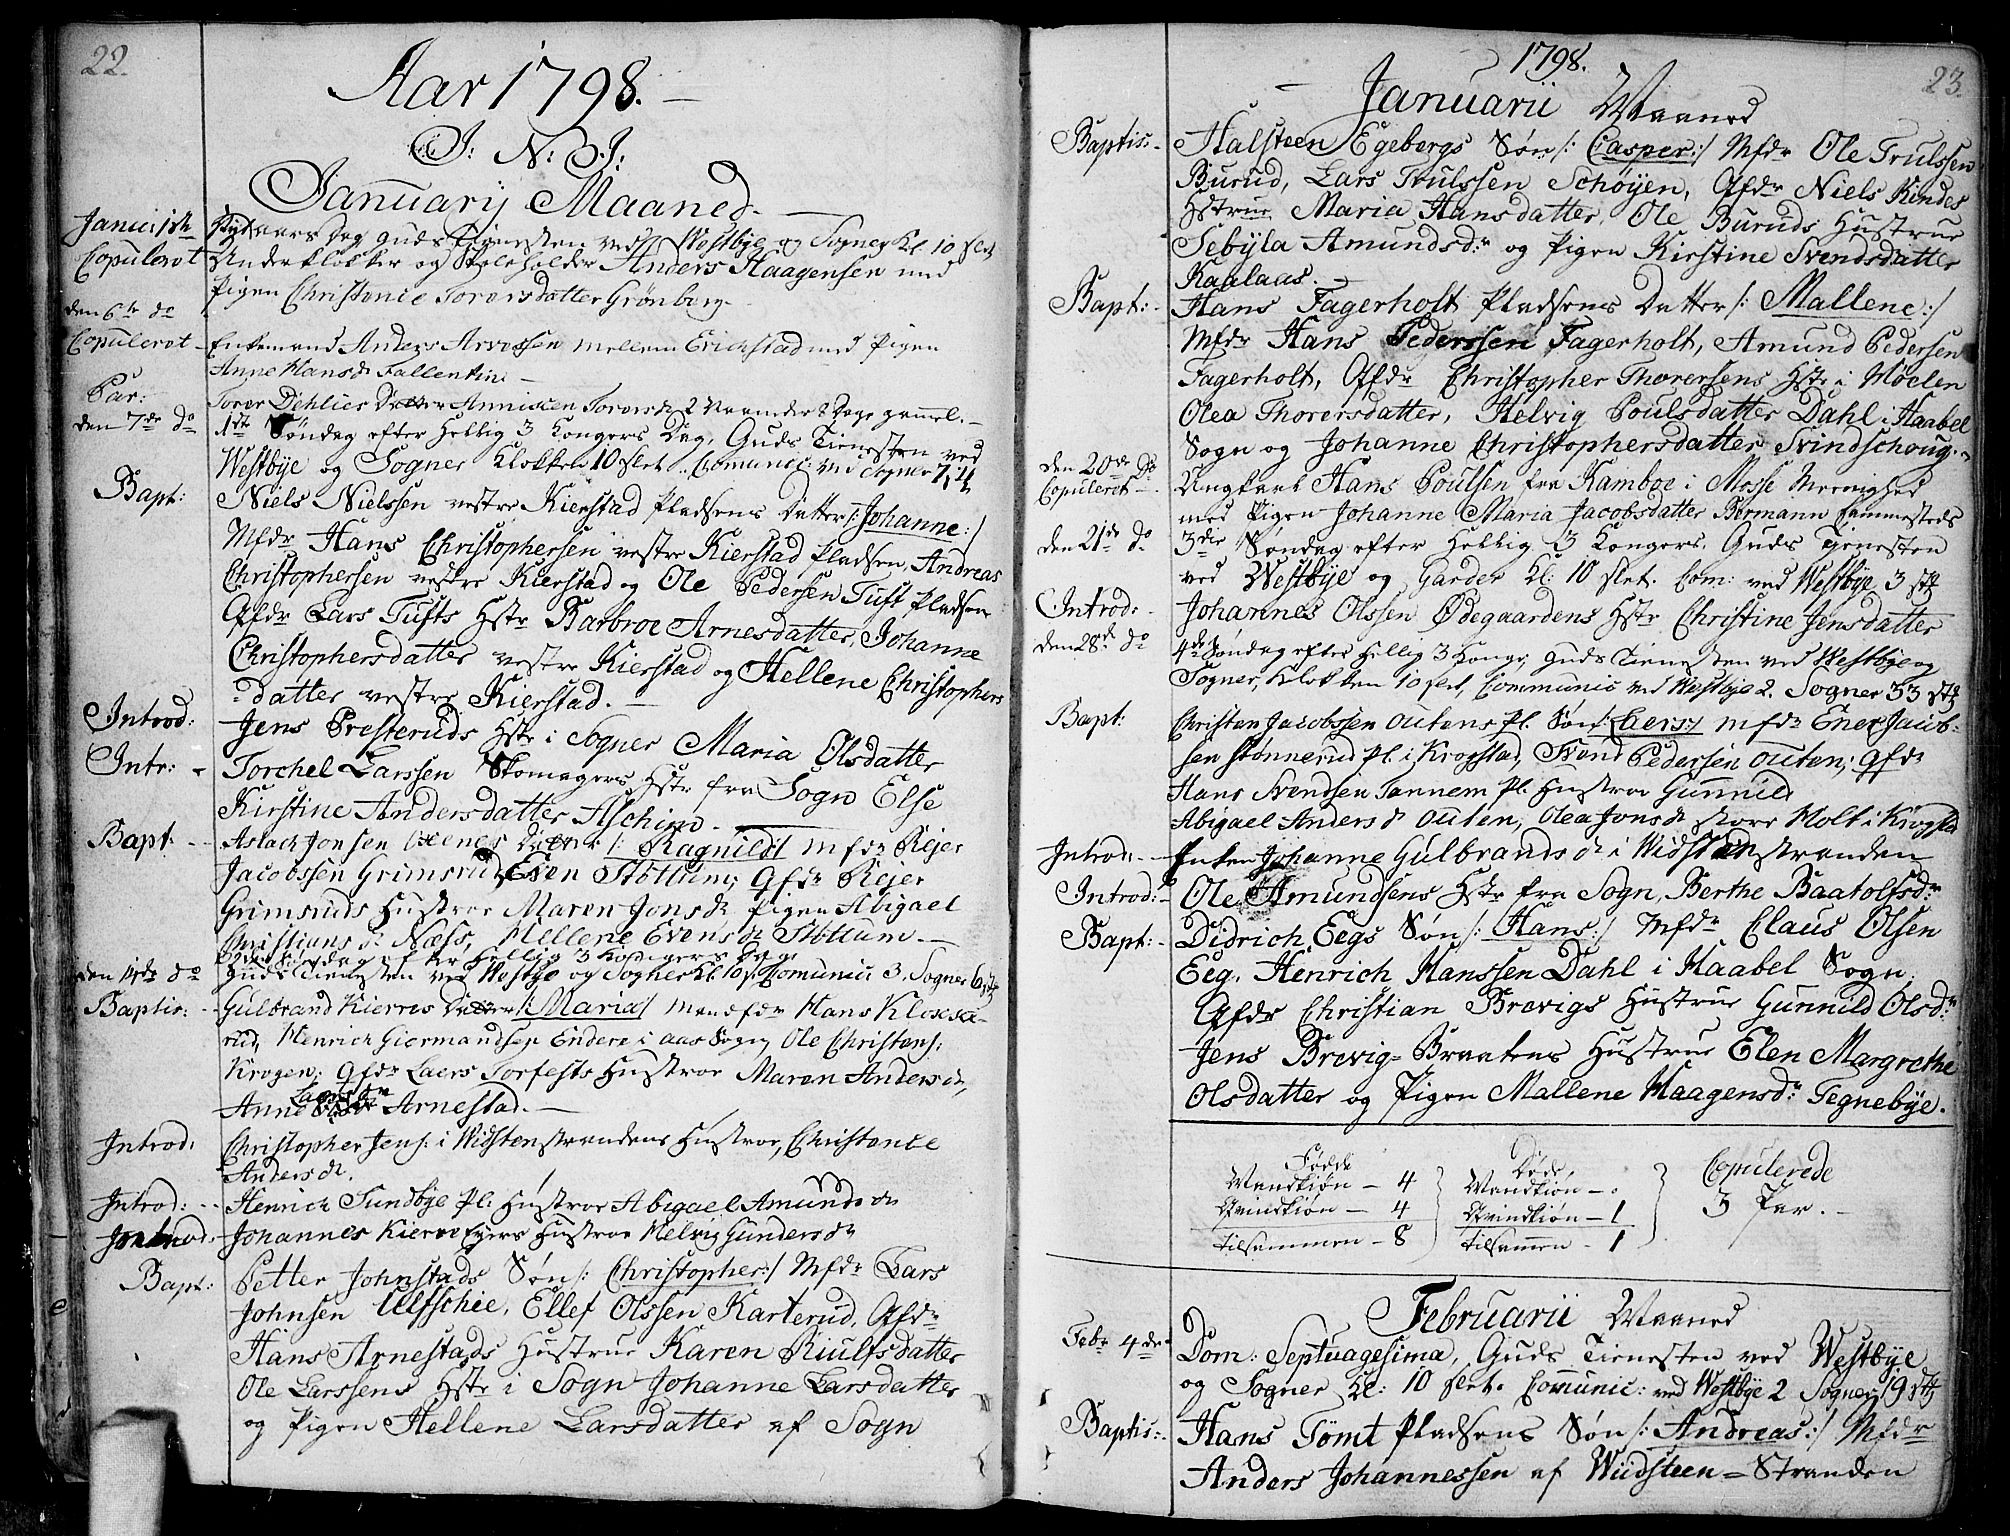 22.
Aar 1798.
I: N: I:
January Maaned.
Janu: 1ste Nytaars Dag Guds Tienesten ved Westbye og Sogner Kl. 10 slet
Copuleret Underklokker og Skoleholder Anders Haagensen med
Pigen Christence Torersdatter Grønberg
den 6te do
Copuleret Enkemand Anders Arvessen mellem Erichstad med Pigen
Anne Hansdr Fallentin
Par: Torer Dehlies Datter Annichen Torersdr 2 Maaneder 2 Dage gammel.
den 7de do 1ste Søndag efter Hellig 3 Kongers Dag, Guds Tienesten ved
Westbye og Sogner Klokken 10 slet. Comunic: ved Sogner 7 stk
Bapt: Niels Nielssen vestre Kierstad Pladsens Datter /: Johanne :/
Mfdr Hans Christophersen vestre Kierstad Pladsen, Andreas
Christophersen vestre Kierstad og Ole Pedersen Tuft Pladsen
Qfdr Lars Tufts Hstr Barbroe Arnesdatter, Johanne
Christophersdatter vestre Kierstad og Hellene Christophers
datter vestre Kierstad.
Introd: Jens Presteruds Hstr i Sogner Maria Olsdatter
Intr: Torchel Larssen Skomagers Hstr fra Sogn Else
Kirstine Andersdatter Aschim
Bapt: Aslach Jonsen Datter /: Ragnild :/ Mfdr Rejer
Jacobssen Grimsrud, Even Støttum; Qfdr Rejer
Grimsruds Hustroe Maren Jonsdr Pigen Abigael
Christiansdr Næss, Hellene Evensdr Støttum
den 14de do 2den Søndag efter Hellig 3 Kongers Dag
Guds Tienesten ved Westbye og Sogner Kl. 10 sl. Comunic 3. Sogner 6 stk
Baptis: Gulbrand Kierres Datter /: Maria :/ Mandfdr Hans Kloses
rud, Henrich Giermandsen Endere i aas Sogn, Ole Christens:
Krogen; Qfdr Laers Torfests Hustroe Maren Andersdr,
Anne Laersdr Arnestad.
Introd: Christopher Jens: i Widstenstrandens Hustroe, Christence
Andersdr.
Introd: Henrich Sundbye Pl: Hustroe Abigael Amundsdr
Introd: Johannes Kierre Eyers Hustroe Helvig Gundersdr
Bapt: Petter Johnstads Søn /: Christopher :/ Mfdr Lars
Johnsen Ulfschie, Ellef Olssen Karterud, Qfdr
Hans Arnestads Hustrue Karen Riulfsdatter
Ole Larssens Hstr i Sogn Johanne Larsdatter
og Pigen Hellene Larsdatter af Sogn
1798. 23.
Januarii Maaned
Baptis: Halsteen Egebergs Søn /: Casper :/ Mfdr Ole Trulssen
Burud, Lars Trulssen Schøyen, Qfdr Niels Kindes
Hstrue Maria Hansdatter, Ole Buruds Hustrue
Sebyla Amundsdr og Pigen Kirstine Svendsdatter
Raalaas.
Bapt: Hans Fagerholt Pladsens Datter /: Mallene :/
Mfdr Hans Pederssen Fagerholt, Amund Pedersen
Fagerholt, Qfdr Christopher Thorersens Hstr i Moelen
Olea Thorersdatter, Helvig Poulsdatter Dahl i Haabel
Sogn og Johanne Christophersdatter Svindschoug.
den 20de do
Copuleret Ungkarl Hans Poulsen fra Kamboe i Mosse Menighed
med Pigen Johanne Maria Jacobsdatter Bermann sammesteds
den 21de do 3die Søndag efter Hellig 3 Kongers, Guds Tienesten
ved Westbye og Garder Kl: 10 slet. Com: ved Westbye 3 stk
Introd: Johannes Olssen Ødegaardens Hstr Christine Jensdatter
den 28de do 4de Søndag efter Hellig 3 Kong: Guds Tienesten ved Westbye og
Sogner, Klokken 10 slet, Communic ved Westbye 2. Sogner 33 stk
Bapt: Christen Jacobssen Outens Pl. Søn /: Laers :/ Mfdr Ener Jacob-
sen Stønnerud Pl. i Krogstad, Svend Pedersen Outen; Qfdr
Hans Svendsen Sannem Pl. Hustroe Gunnild
Abigael Andersdr Outen, Olea Jonsdr store Holt i Krogsta
Introd: Enken Johanne Gulbrandsdr i Widstenstranden
Introd: Ole Amundsens Hstr fra Sogn, Berthe Baatolfsdr
Bapt: Didrich Eegs Søn /: Hans :/ Mfdr Claus Olsen
Eeg, Henrich Hanssen Dahl i Haabel Sogn,
Qfdr Christian Brevigs Hustrue Gunnild Olsdr
Jens Brevig-Braatens Hustrue Elen Margrethe
Olsdatter og Pigen Mallene Haagensdr Tegnebye.
Fødde Døde, Copulerede
Mandkiøn - 4 Mandkiøn - 0 3 Par.
Qvindkiøn - 4 Qvindkiøn - 1
Tilsammen - 8 Tilsamen - 1
Februarii Maaned
Febr 4de Dom: Septuagesima, Guds Tienesten ved Westbye
og Sogner Kl: 10 slet. Comunic: ved Westbye 2 Sogner 19 stk
Baptis: Hans Tømt Pladsens Søn /: Andreas :/ Mfdr
Anders Johannessen af Wiidsteen-Stranden